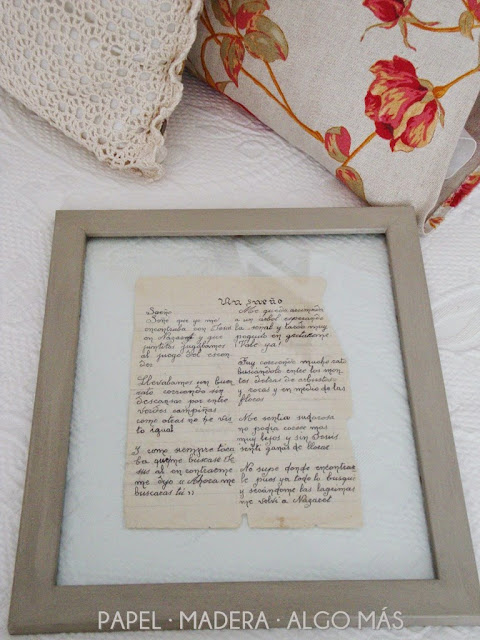 Un sueño
Sueño
Soñé que yo me
encontraba con Jesús
en Nazaret y que
juntitos jugábamos
al juego del escon
dite
Llevábamos un buen
rato corriendo sin
descansar por entre
verdes campiñas
como otras no he vis
to igual
Y como siempre toca
ba que me buscase Je
sus al
me dijo "Ahora me
buscarás tú"
Me quedé
a un árbol esperando
la señal y tardó muy
poquito en gritarme
¡Vale ya!
Fuy corriendo mucho rato
buscándolo entre los mon
tes detrás de arbustos
y rocas y en medio de las
flores
Me sentía sudorosa
no podía correr mas
muy lejos y sin Jesús
sentí ganas de llorar
No supe donde encontrar
le pues ya todo lo busqué
y secándome las lágrimas
me volví a Nazaret
PAPEL · MADERA · ALGO MÁS